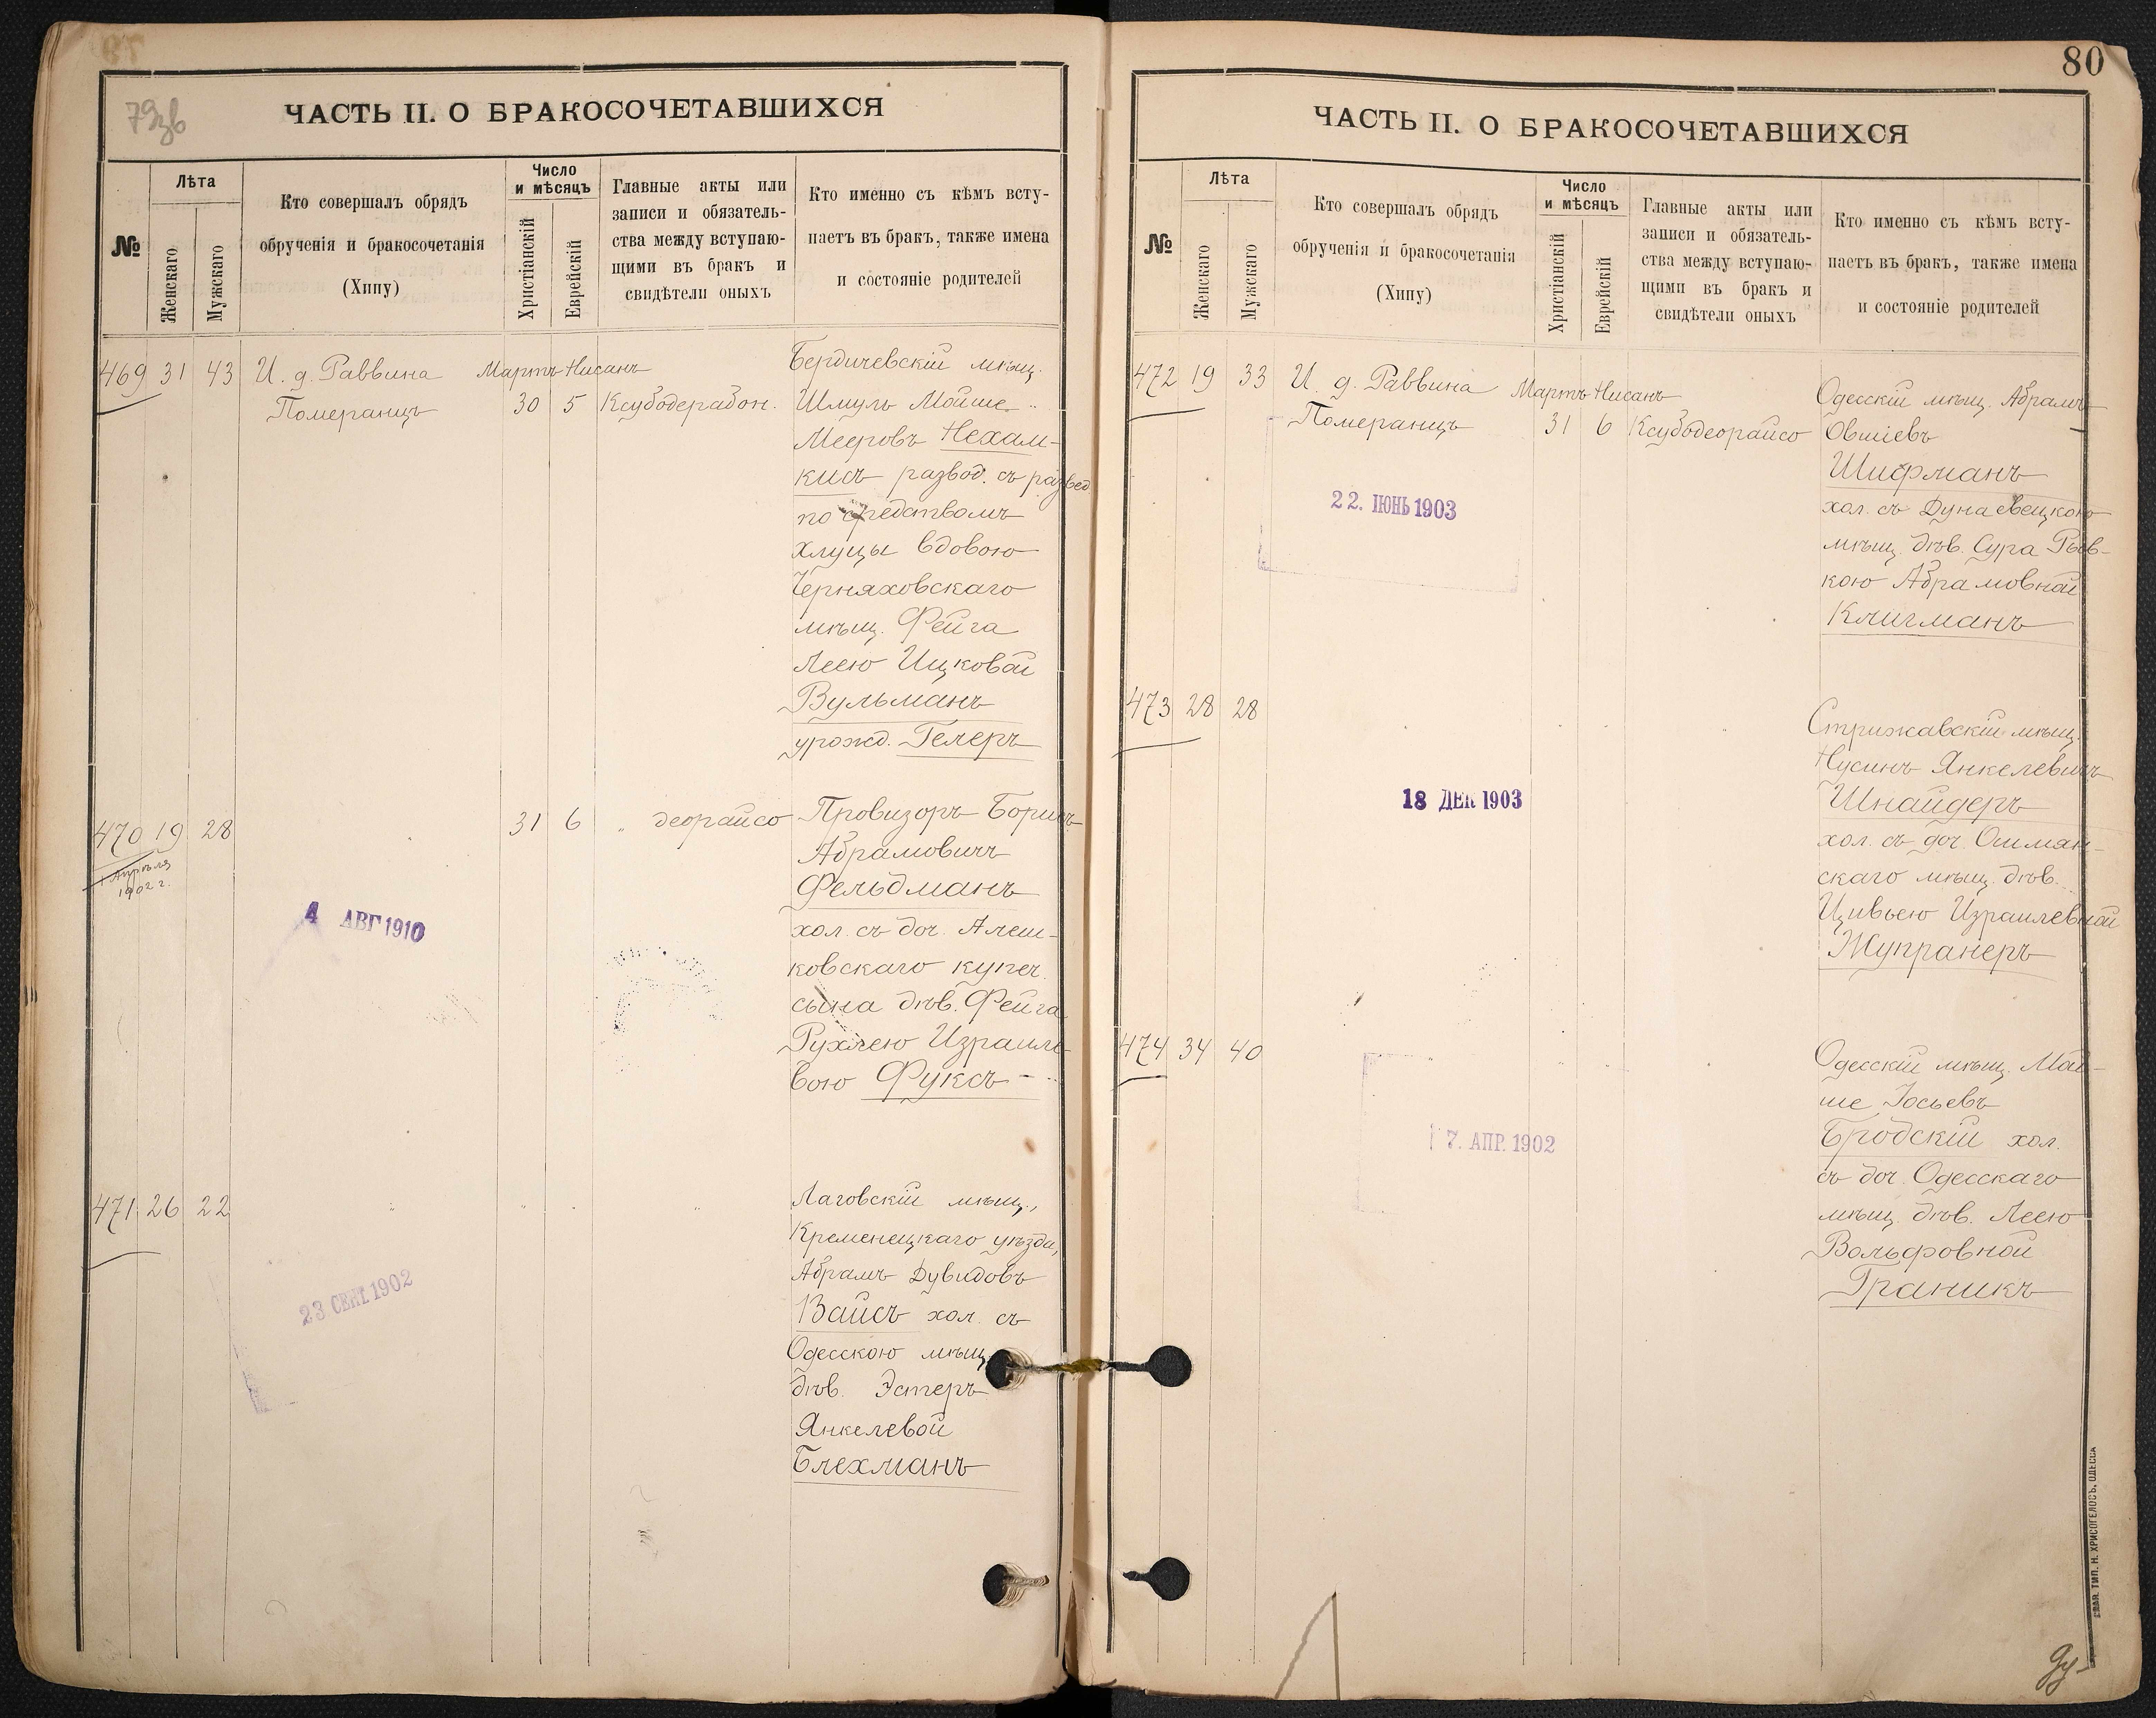 79зв
ЧАСТЬ II. О БРАКОСОЧЕТАВШИХСЯ
№
Лѣта
Женскаго
Мужскаго
Кто совершалъ обрядъ
обрученія и бракосочетанія
(Хипу)
Число
и мѣсяцъ
Христіанскій
Еврейскій
Главные акты или
записи и обязатель-
ства между вступаю-
щими въ бракъ и
свидѣтели оныхъ
Кто именно съ кѣмъ всту-
паетъ въ бракъ, также имена
и состояніе родителей
469 31 43 И. д. Раввина Мартъ Нисанъ
Померанцъ 30 5 Ксубодерабон.
Бердичевскій мѣщ.
Шмуль Мойше
Мееровъ Нехам-
кисъ развод. съ развед
по средствомъ
хлуцы вдовою
Черняховскаго
мѣщ. Фейга
Леею Ицковой
Вульманъ
урожд. Гелеръ
470 19 28 31 6 " деорайсо
1 Апрѣля
1902 г.
4 АВГ 1910
Провизоръ Борисъ
Абрамовичъ
Фельдманъ
хол. съ доч. Алеш-
ковскаго купеч.
сына дѣв. Фейга
Рухлею Израиле-
вою Фуксъ
471 26 22 " " " "
23 СЕНТ 1902
Лаговскій мѣщ.,
Кременецкаго уѣзда,
Абрамъ Дувидовъ
Вайсъ хол. съ
Одесскою мѣщ.
дѣв. Эстеръ
Янкелевой
Блехманъ
80
ЧАСТЬ II. О БРАКОСОЧЕТАВШИХСЯ
№
Лѣта
Женскаго
Мужскаго
Кто совершалъ обрядъ
обрученія и бракосочетанія
(Хипу)
Число
и мѣсяцъ
Христіанскій
Еврейскій
Главные акты или
записи и обязатель-
ства между вступаю-
щими въ бракъ и
свидѣтели оныхъ
Кто именно съ кѣмъ всту-
паетъ въ бракъ, также имена
и состояніе родителей
472 19 33 И. д. Раввина Мартъ Нисанъ
Померанцъ 31 6 Ксубодеорайсо
22. ІЮНЬ 1903
Одесскій мѣщ. Абрамъ
Овшіевъ
Шифманъ
хол. съ Дунаевецкою
мѣщ. дѣв. Сура Рыв-
кою Абрамовной
Клигманъ
473 28 28
18 ДЕК 1903
Стрижавскій мѣщ.
Нусинъ Янкелевичъ
Шнайдеръ
хол. съ доч. Ошмян-
скаго мѣщ. дѣв.
Цивьею Израилевной
Жупранеръ
474 34 40
7. АПР. 1902
Одесскій мѣщ. Мой-
ше Іосьевъ
Бродскій хол.
съ доч. Одесскаго
мѣщ. дѣв. Леею
Вольфовной
Граникъ
ТИП. Н. ХРИСОГЕЛОСЪ, ОДЕССА